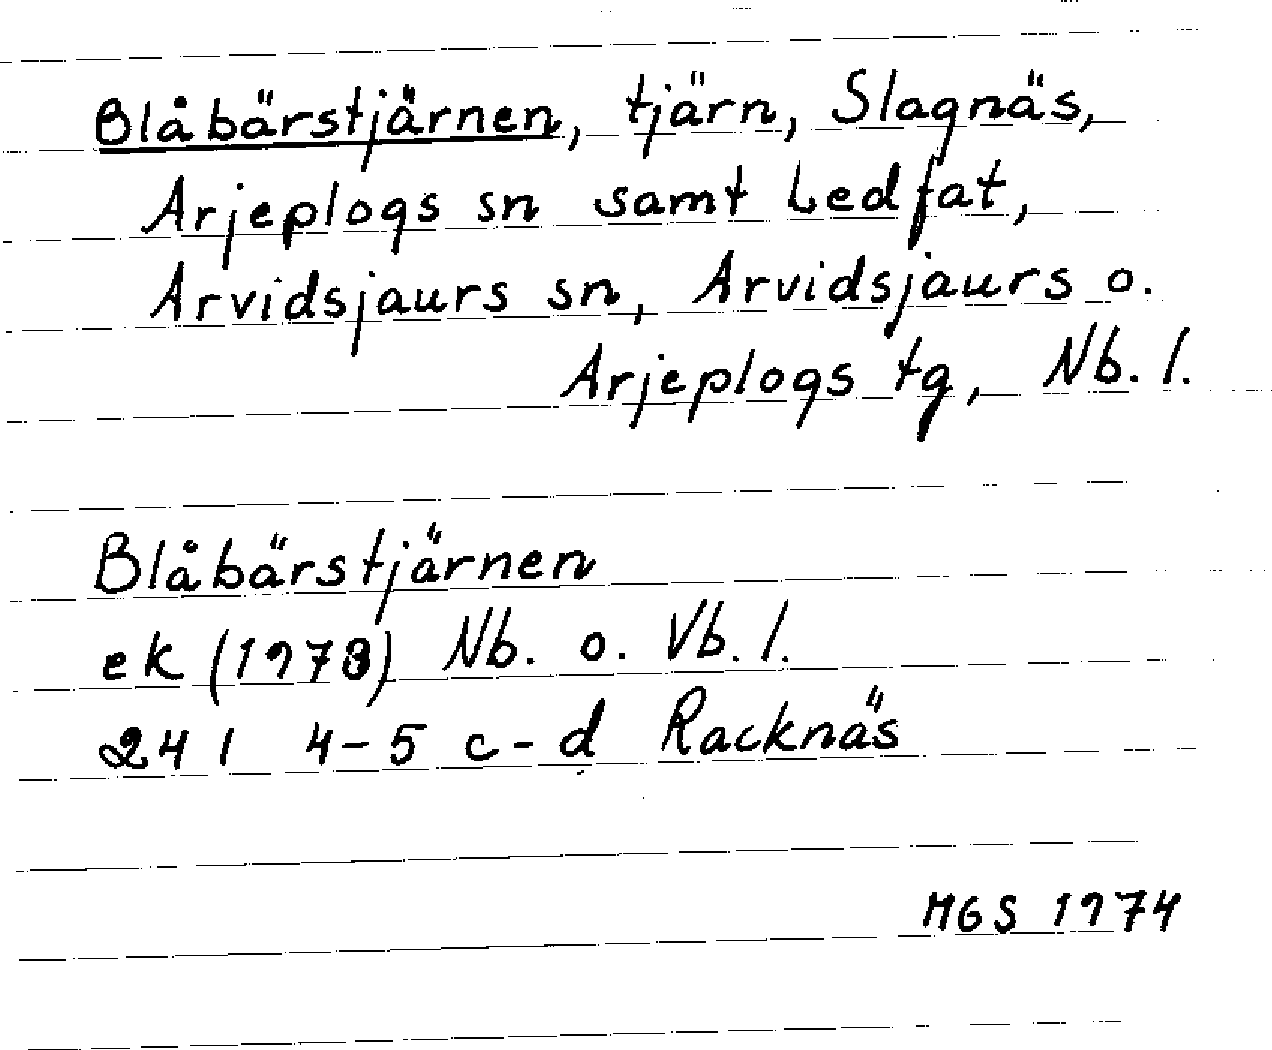 Blåbärstjärnen, tjärn, Slagnäs,
Arjeplogs sn samt Ledfat,
Arvidsjaurs sn, Arvidsjaurs o.
Arjeplogs tg, Nb. l.
Blåbärstjärnen
ek (1973) Nb. o. Vb. l.
24 I 4-5 c-d Racknäs
MGS 1974